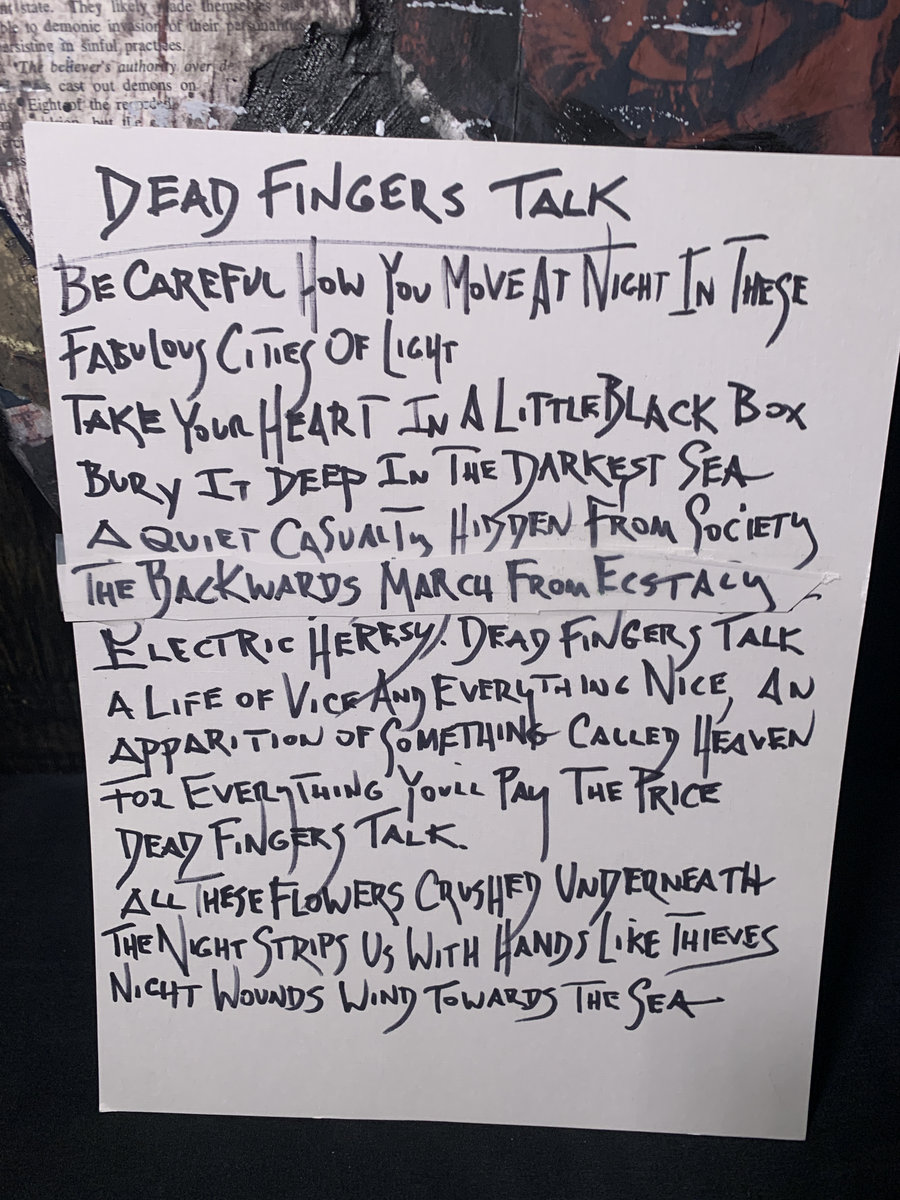 nt state. They likely made themselves sus
ble to demonic invasion of their personalities
ersisting in sinful practices.
"The believer's authority over de
cast out demons on
Eight of the recorded
DEAD FINGERS TALK
BE CAREFUL HOW YOU MOVE AT NIGHT IN THESE
FABULOUS CITIES OF LIGHT
TAKE YOUR HEART IN A LITTLE BLACK BOX
BURY IT DEEP IN THE DARKEST SEA
A QUIET CASUALTY HIDDEN FROM SOCIETY
THE BACKWARDS MARCH FROM ECSTACY
ELECTRIC HERESY. DEAD FINGERS TALK
A LIFE OF VICE AND EVERYTHING NICE, AN
APPARITION OF SOMETHING CALLED HEAVEN
FOR EVERYTHING YOULL PAY THE PRICE
DEAD FINGERS TALK.
ALL THESE FLOWERS CRUSHED UNDERNEATH
THE NIGHT STRIPS US WITH HANDS LIKE THIEVES
NIGHT WOUNDS WIND TOWARDS THE SEA